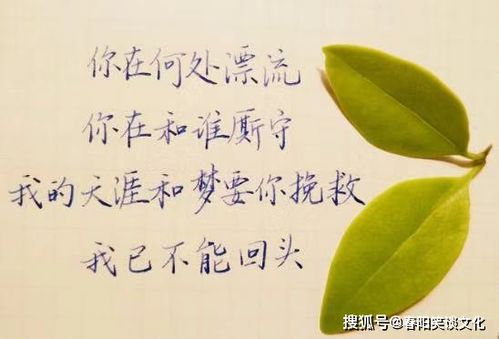 你在何处漂流
你在和谁厮守
我的天涯和梦要你挽救
我已不能回头
搜狐号@春阳笑谈文化